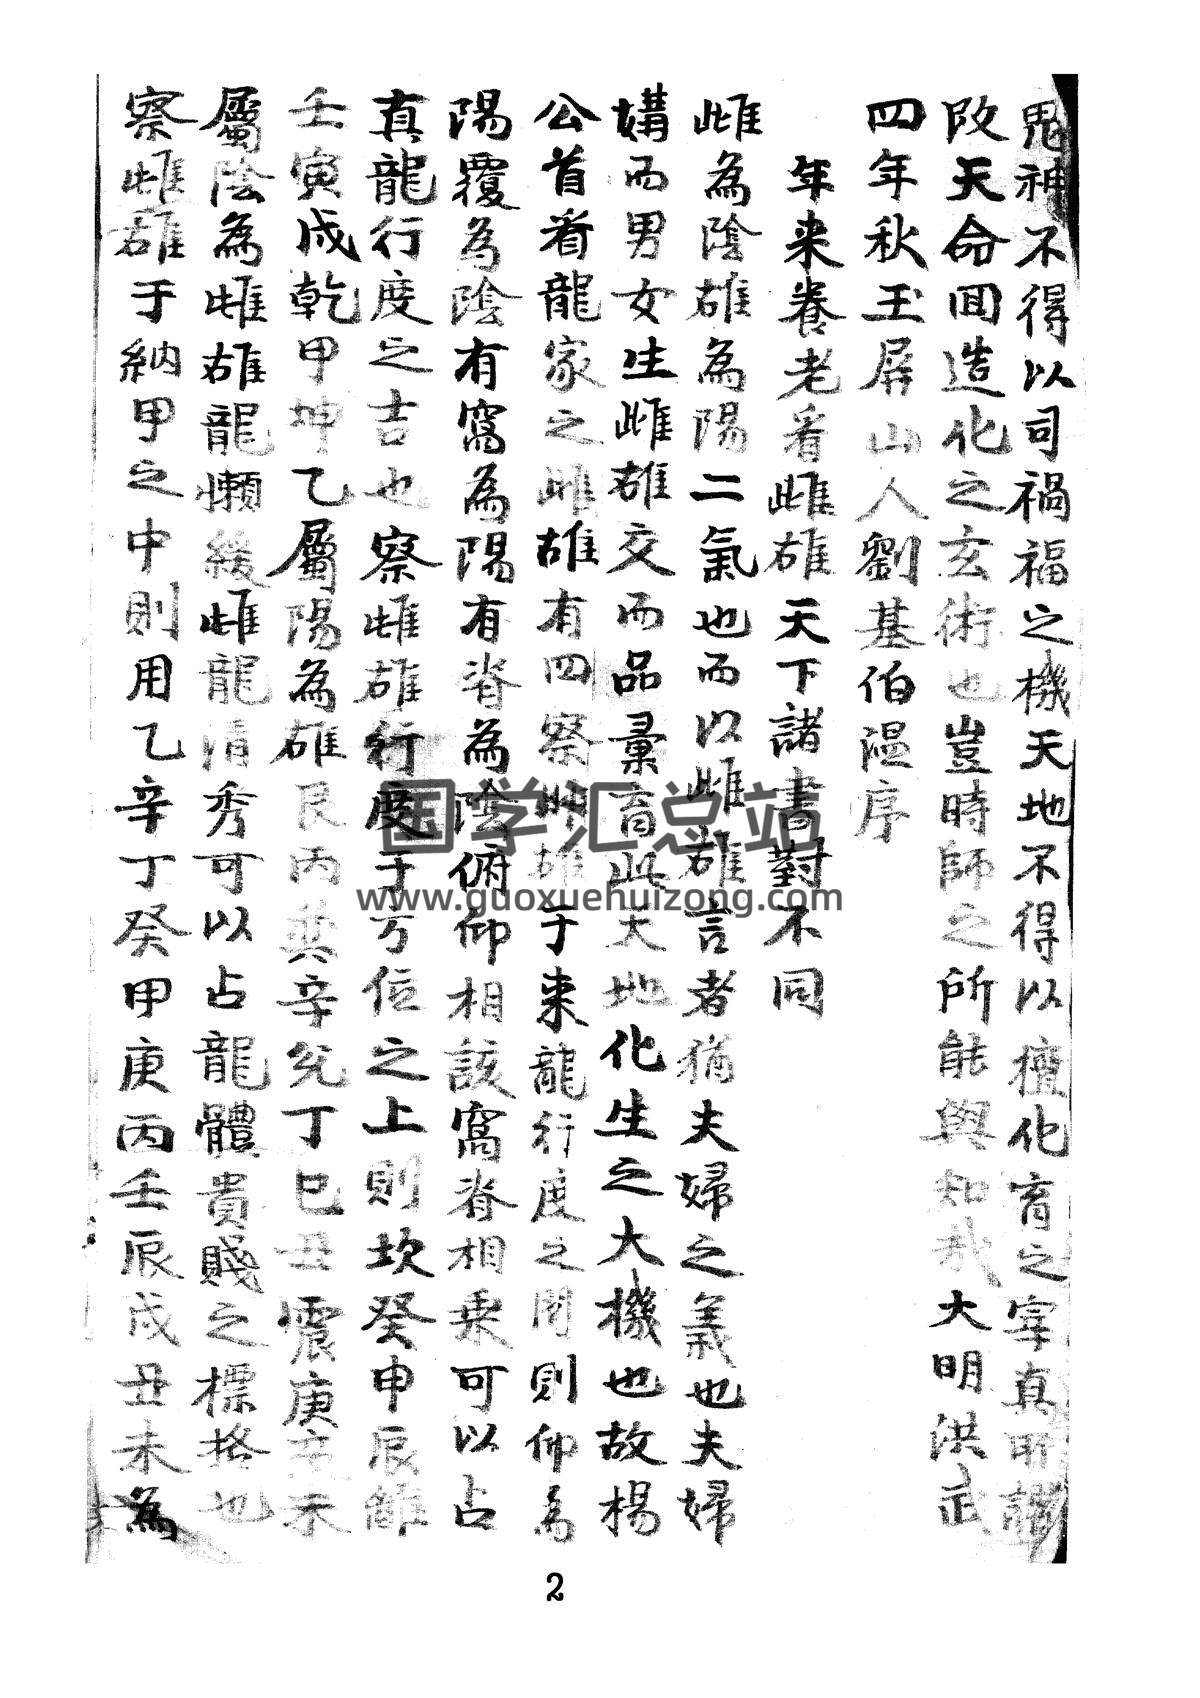 鬼神不得以司禍福之機天地不得以擅化育之宰真所謂
改天命回造化之玄術也豈時師之所能與知哉大明洪武
四年秋玉屏山人劉基伯溫序
年来養老看雌雄天下諸書對不同
雌為陰雄為陽二氣也而以雌雄言者猶夫婦之義也夫婦
媾而男女生雌雄交而品彙育此天地化生之大機也故楊
公首看龍家之雌雄有四察雌雄于来龍行度之間則仰為
陽覆為陰有窩為陽有脊為陰俯仰相該窩脊相乗可以占
真龍行度之吉也察雌雄行度于方位之上則坎癸申辰離
壬寅戌乾甲坤乙屬陽為雄艮丙巽辛兌丁巳丑震庚亥未
屬陰為雌雄龍懶緩雌龍清秀可以占龍體貴賤之標格也
察雌雄于納甲之中則用乙辛丁癸甲庚丙壬辰戌丑未為
国学汇总站
www.guoxuehuizong.com
2